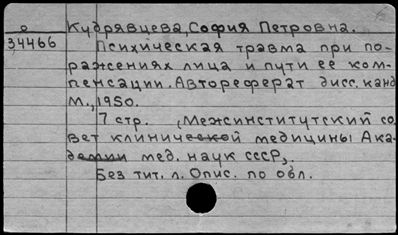 о Кудрявцева, София Петровна.
34466 Психическая травма при по-
ражениях лица и пути ее ком-
пенсации. Автореферат дисс. канд
М., 1950.
7 стр. (Межинститутский со
вет клинической медицины Ака-
демии мед. наук СССР).
Без тит. л. Опис. по обл.